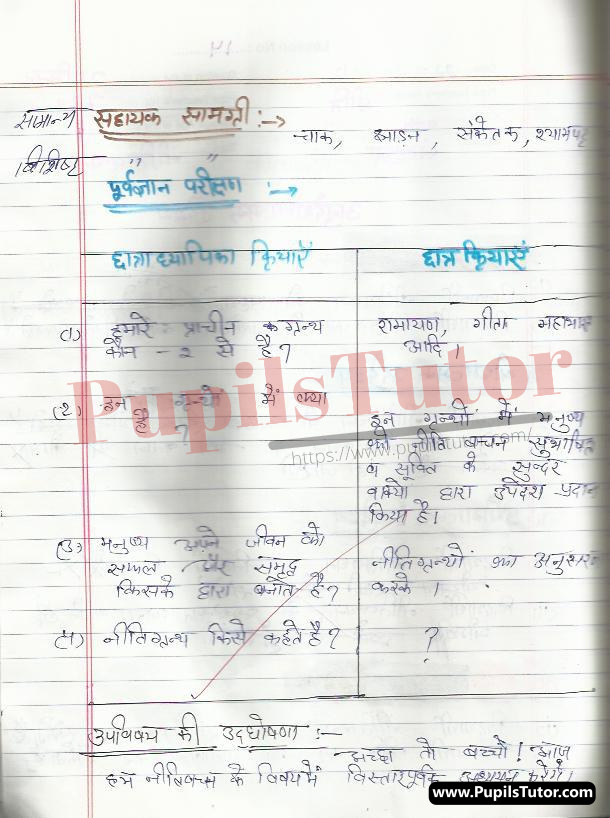 सामान्य सहायक सामग्री :→
चाक, झाड़न, संकेतक, श्यामपट्ट
विशिष्ट " "
पूर्वज्ञान परीक्षण :→
छात्राध्यापिका क्रियाऐं
छात्र क्रियाऐं
(1) हमारे प्राचीन ग्रन्थ
कौन - २ से है?
रामायण, गीता महाभारत
आदि।
(2) इन ग्रन्थों में क्या
है ?
इन ग्रन्थों में मनुष्य
को नीति बच्चन सुभाषित
व सूक्ति के सुन्दर
वाक्यो द्वारा उपदेश प्रदान
किया है।
(3) मनुष्य अपने जीवन को
सफल और समृद्ध
किसके द्वारा बनाते है?
नीतिग्रन्थों का अनुसरण
करके।
(4) नीतिग्रन्थ किसे कहते है?
?
उपविषय की उद्घोषणा :-
अच्छा तो बच्चो! आज
हम के विषय में विस्तारपूर्वक अध्ययन करेंगे।
PupilsTutor
https://www.pupilstutor.com/
www.PupilsTutor.com